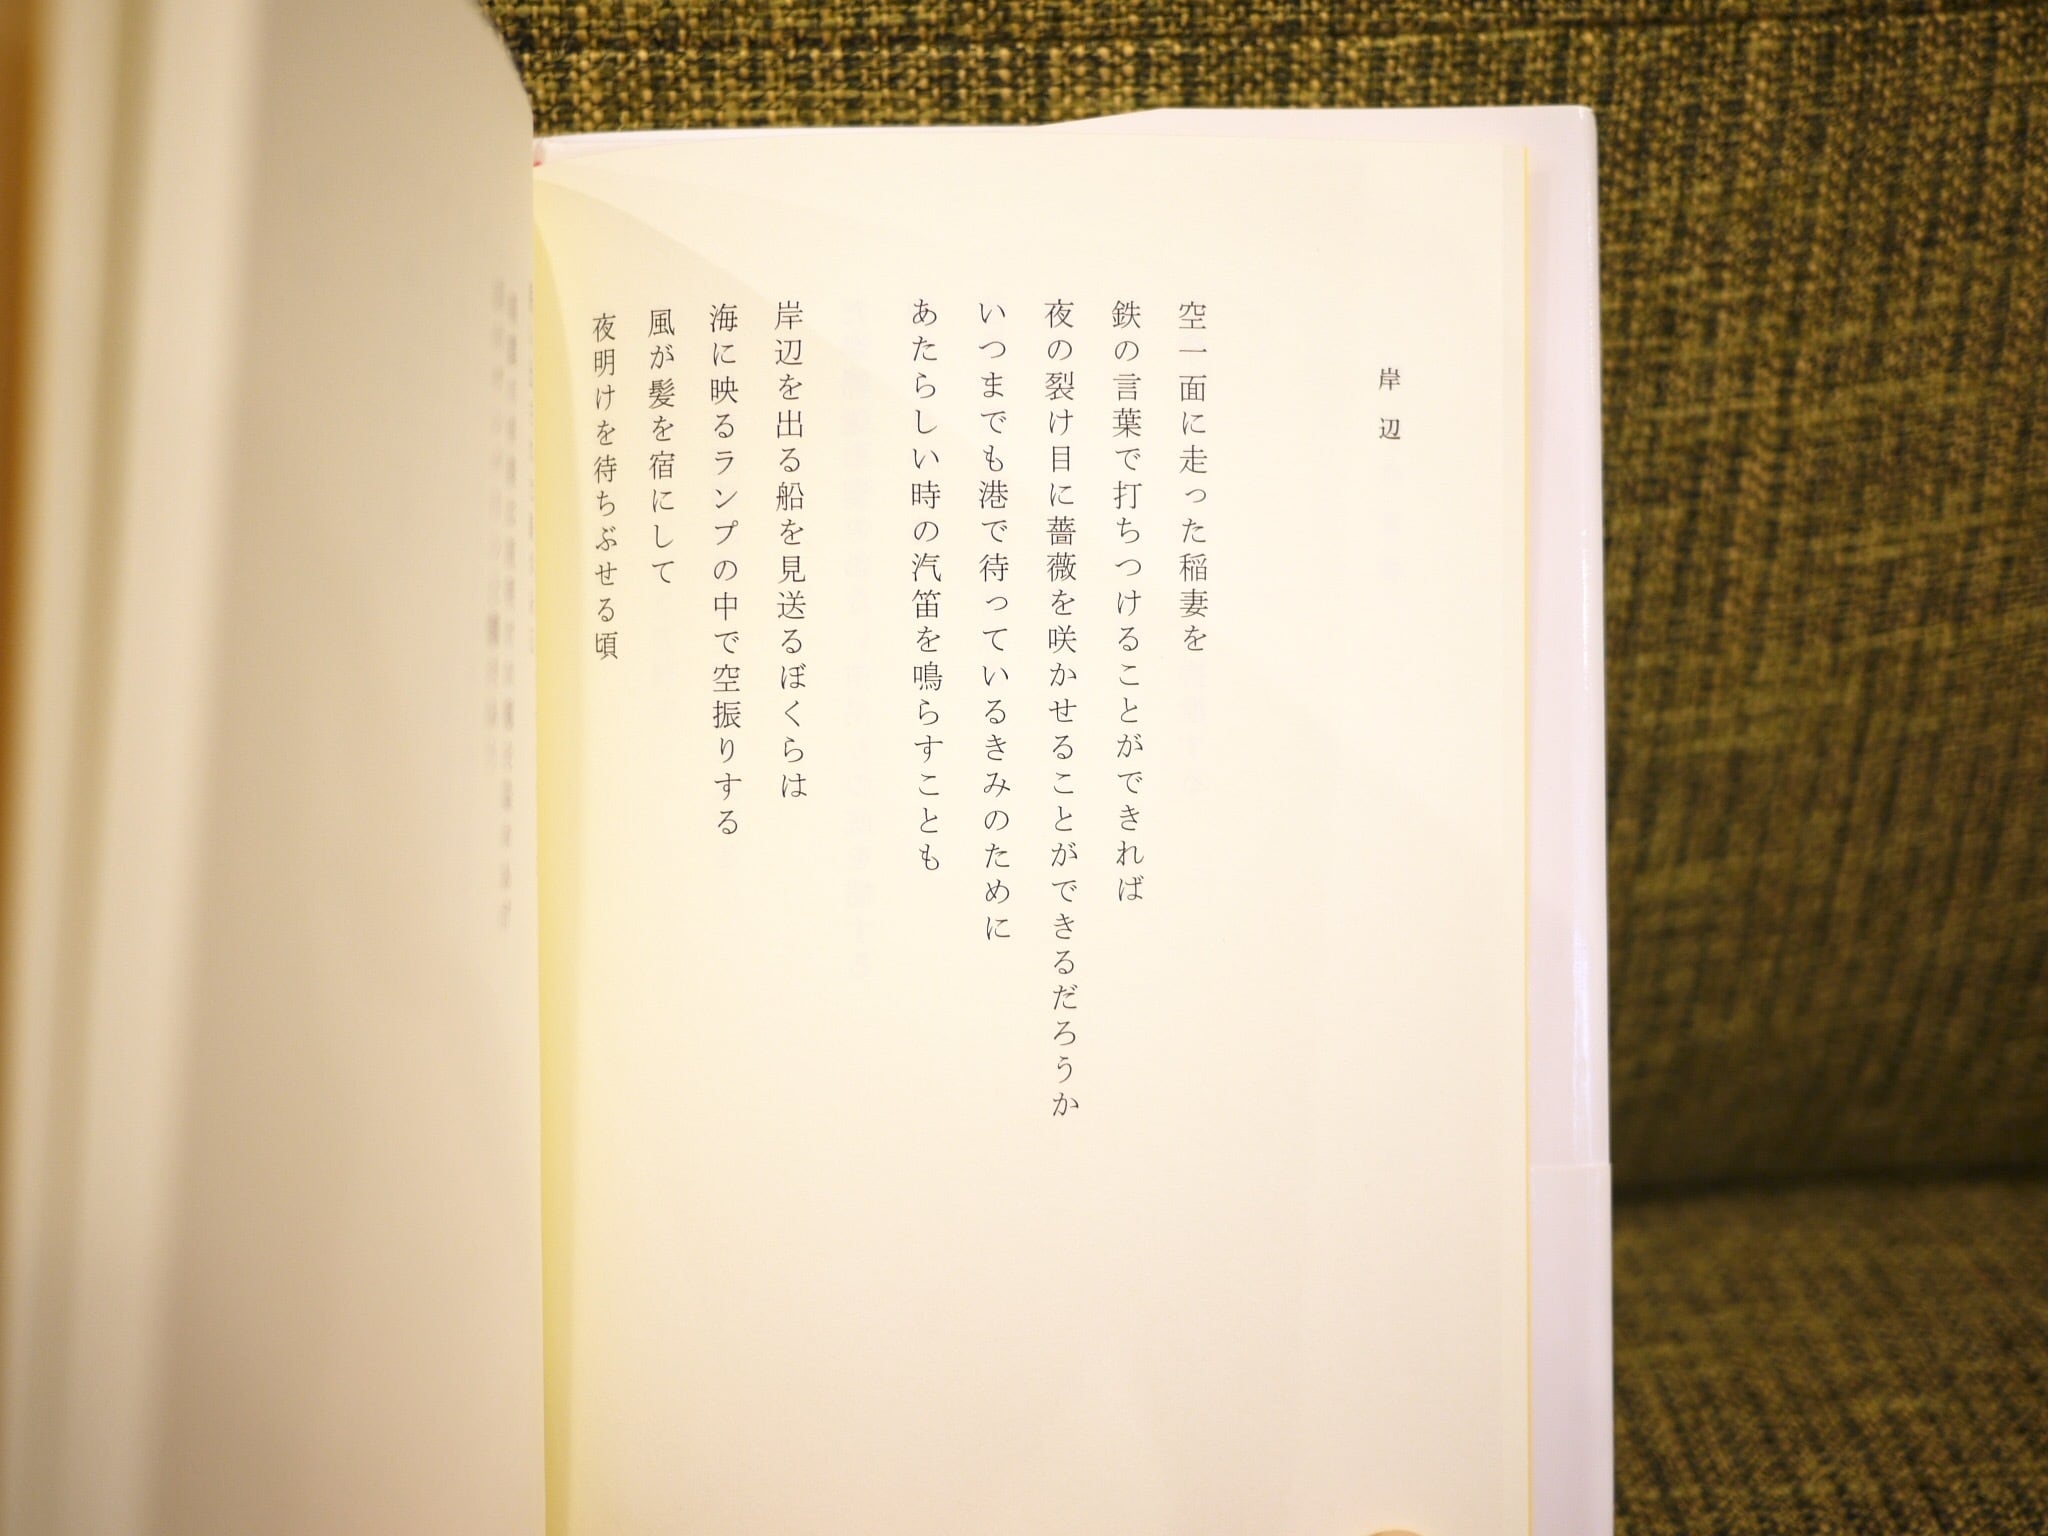 岸辺
空一面に走った稲妻を
鉄の言葉で打ちつけることができれば
夜の裂け目に薔薇を咲かせることができるだろうか
いつまでも港で待っているきみのために
あたらしい時の汽笛を鳴らすことも
岸辺を出る船を見送るぼくらは
海に映るランプの中で空振りする
風が髪を宿にして
夜明けを待ちぶせる頃